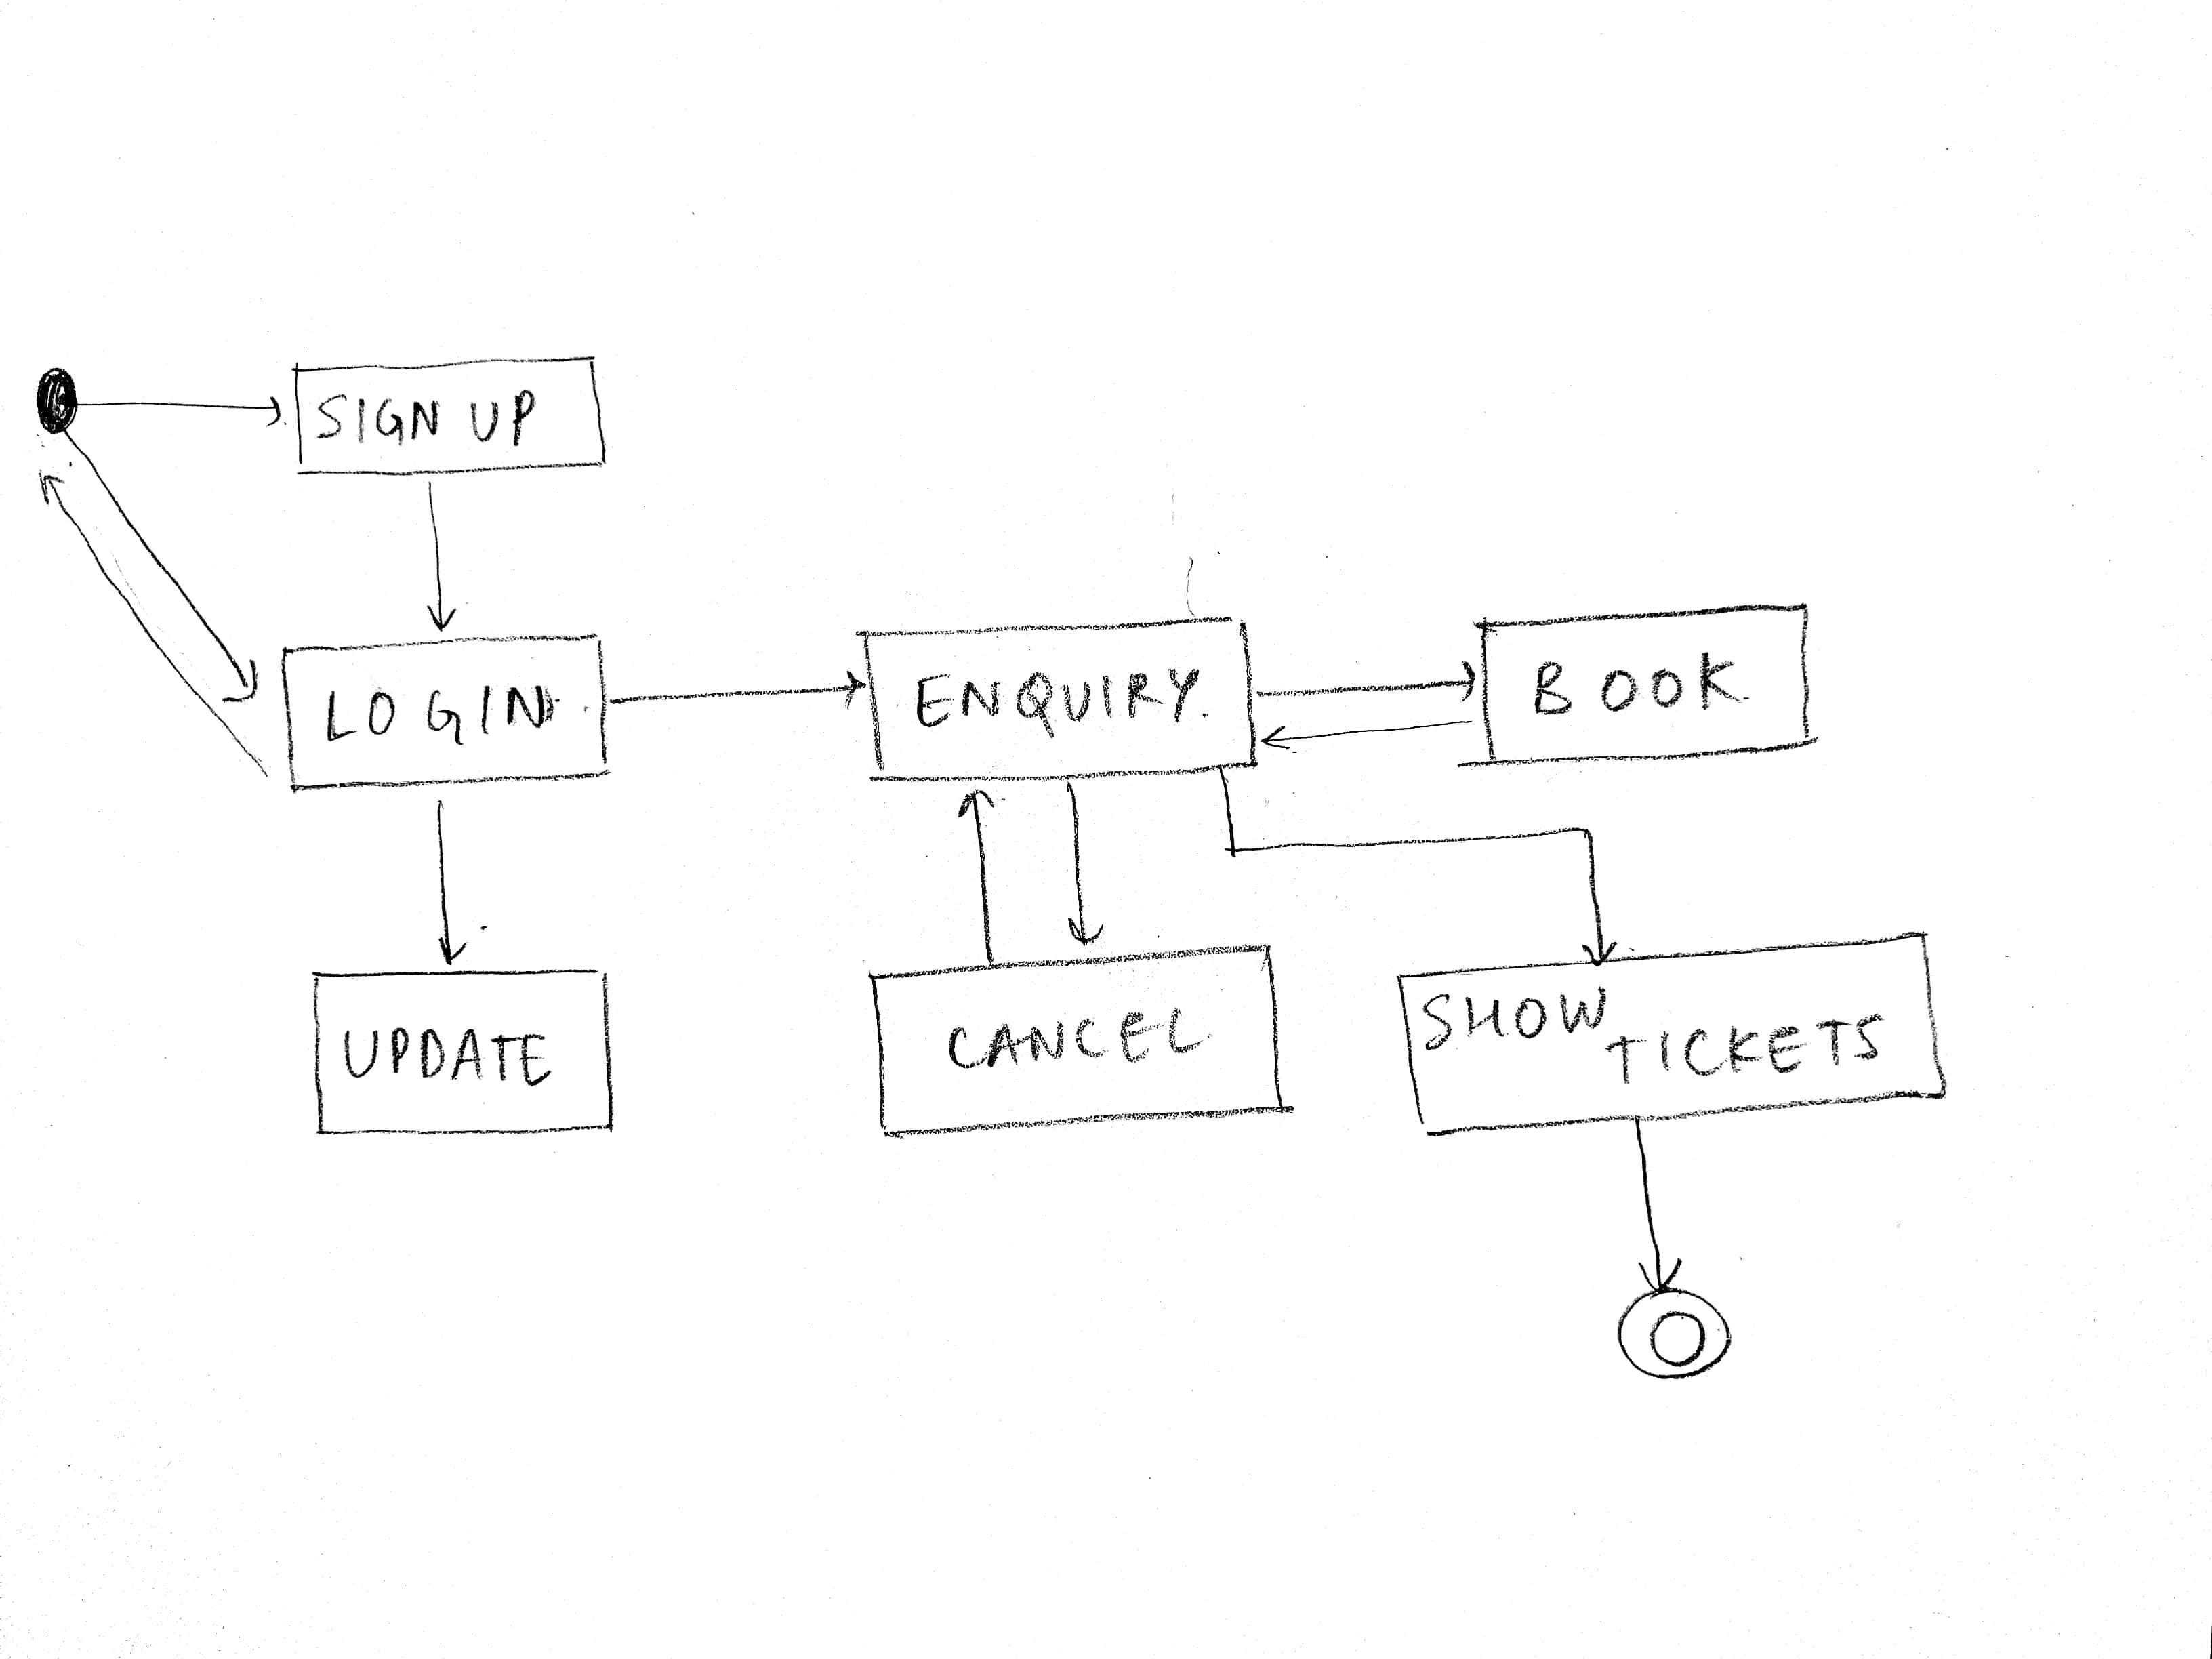 SIGN UP
LOGIN
ENQUIRY
BOOK
UPDATE
CANCEL
SHOW
TICKETS